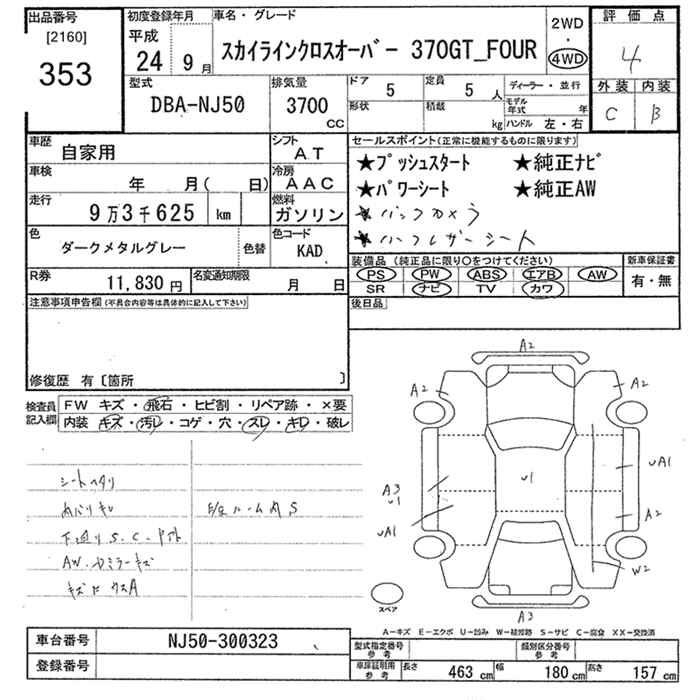 出品番号 初度登録年月 車名・グレード 2WD・4WD 評価点
[2160] 353
平成 24 9月
スカイラインクロスオーバー 370GT_FOUR
4
外装 内装
C B
型式 DBA-NJ50
排気量 3700 CC
ドア 5 定員 5人
形状 積載 kg
ディーラー・並行
モデル年式 年
ハンドル 左・右
車歴 自家用
シフト AT
車検 年 月( 日)
冷房 AAC
走行 9万3千625 km
燃料 ガソリン
色 ダークメタルグレー 色替
色コード KAD
R券 11,830円 名変通知期限 月 日
セールスポイント(正常に機能するものに限ります)
★プッシュスタート ★純正ナビ
★パワーシート ★純正AW
★バックカメラ
★ハーフレザーシート
装備品(純正品に限り○をつけてください) 新車保証書
PS PW ABS エアB AW 有・無
SR ナビ TV カワ
後日品
注意事項申告欄(不具合内容等は具体的に記入して下さい)
修復歴 有〔箇所 〕
検査員記入欄
FW キズ・飛石・ヒビ割・リペア跡・×要
内装 キズ・汚レ・コゲ・穴・スレ・キレ・破レ
シートヘタリ
下廻りS.C.
AW.ドミラーキズ
A2
A2 A2
U1
UA1
A3
U1
UA1
A2
W2
A3
スペア
A-キズ E-エクボ U-凹み W-補修跡 S-サビ C-腐食 XX-交換済
車台番号 NJ50-300323
登録番号
型式指定番号 参考 類別区分番号 参考
車庫証明用 参考 長さ 463cm 幅 180cm 高さ 157cm